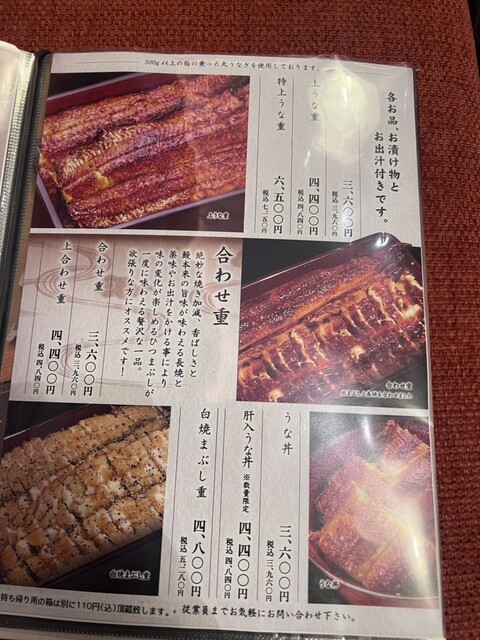 300g以上の脂の乗った大うなぎを使用しております。
各お品、お漬け物と
お出汁付きです。
三、六〇〇円
税込三、九六〇円
上うな重
四、四〇〇円
税込四、八四〇円
特上うな重
六、五〇〇円
税込七、一五〇円
上うな重
合わせ重
絶妙な焼き加減、香ばしさと
鰻本来の旨味が味わえる長焼と
薬味やお出汁をかける事により
味の変化が楽しめるひつまぶしが
一度に味わえる贅沢な一品。
欲張りな方にオススメです！
合わせ重
三、六〇〇円
税込三、九六〇円
上合わせ重
四、四〇〇円
税込四、八四〇円
合わせ重
うな丼
三、六〇〇円
税込三、九六〇円
肝入うな丼 ※数量限定
四、四〇〇円
税込四、八四〇円
白焼まぶし重
四、八〇〇円
税込五、二八〇円
白焼まぶし重
うな丼
持ち帰り用の箱は別に110円(込)頂戴致します。。従業員までお気軽にお問い合わせ下さい。